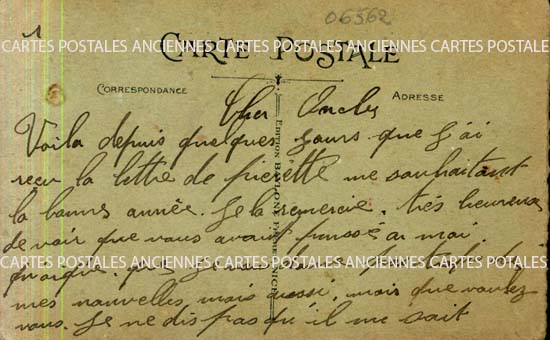 06562
CARTE POSTALE
CARTES POSTALES ANCIENNES CARTES POSTALES ANCIENNES CARTES POSTALES
CORRESPONDANCE
ADRESSE
Cher Oncle
Voila depuis quelques jours que j'ai
reçu la lettre de pierrette me souhaitant
la bonne année. Je la remercie, très heureux
de voir que vous avez pensé a moi
quoique
CARTES POSTALES ANCIENNES CARTES POSTALES ANCIENNES CARTES POSTALES
mes nouvelles, mais aussi, mais que voulez
vous. Je ne dis pas qu'il me sait